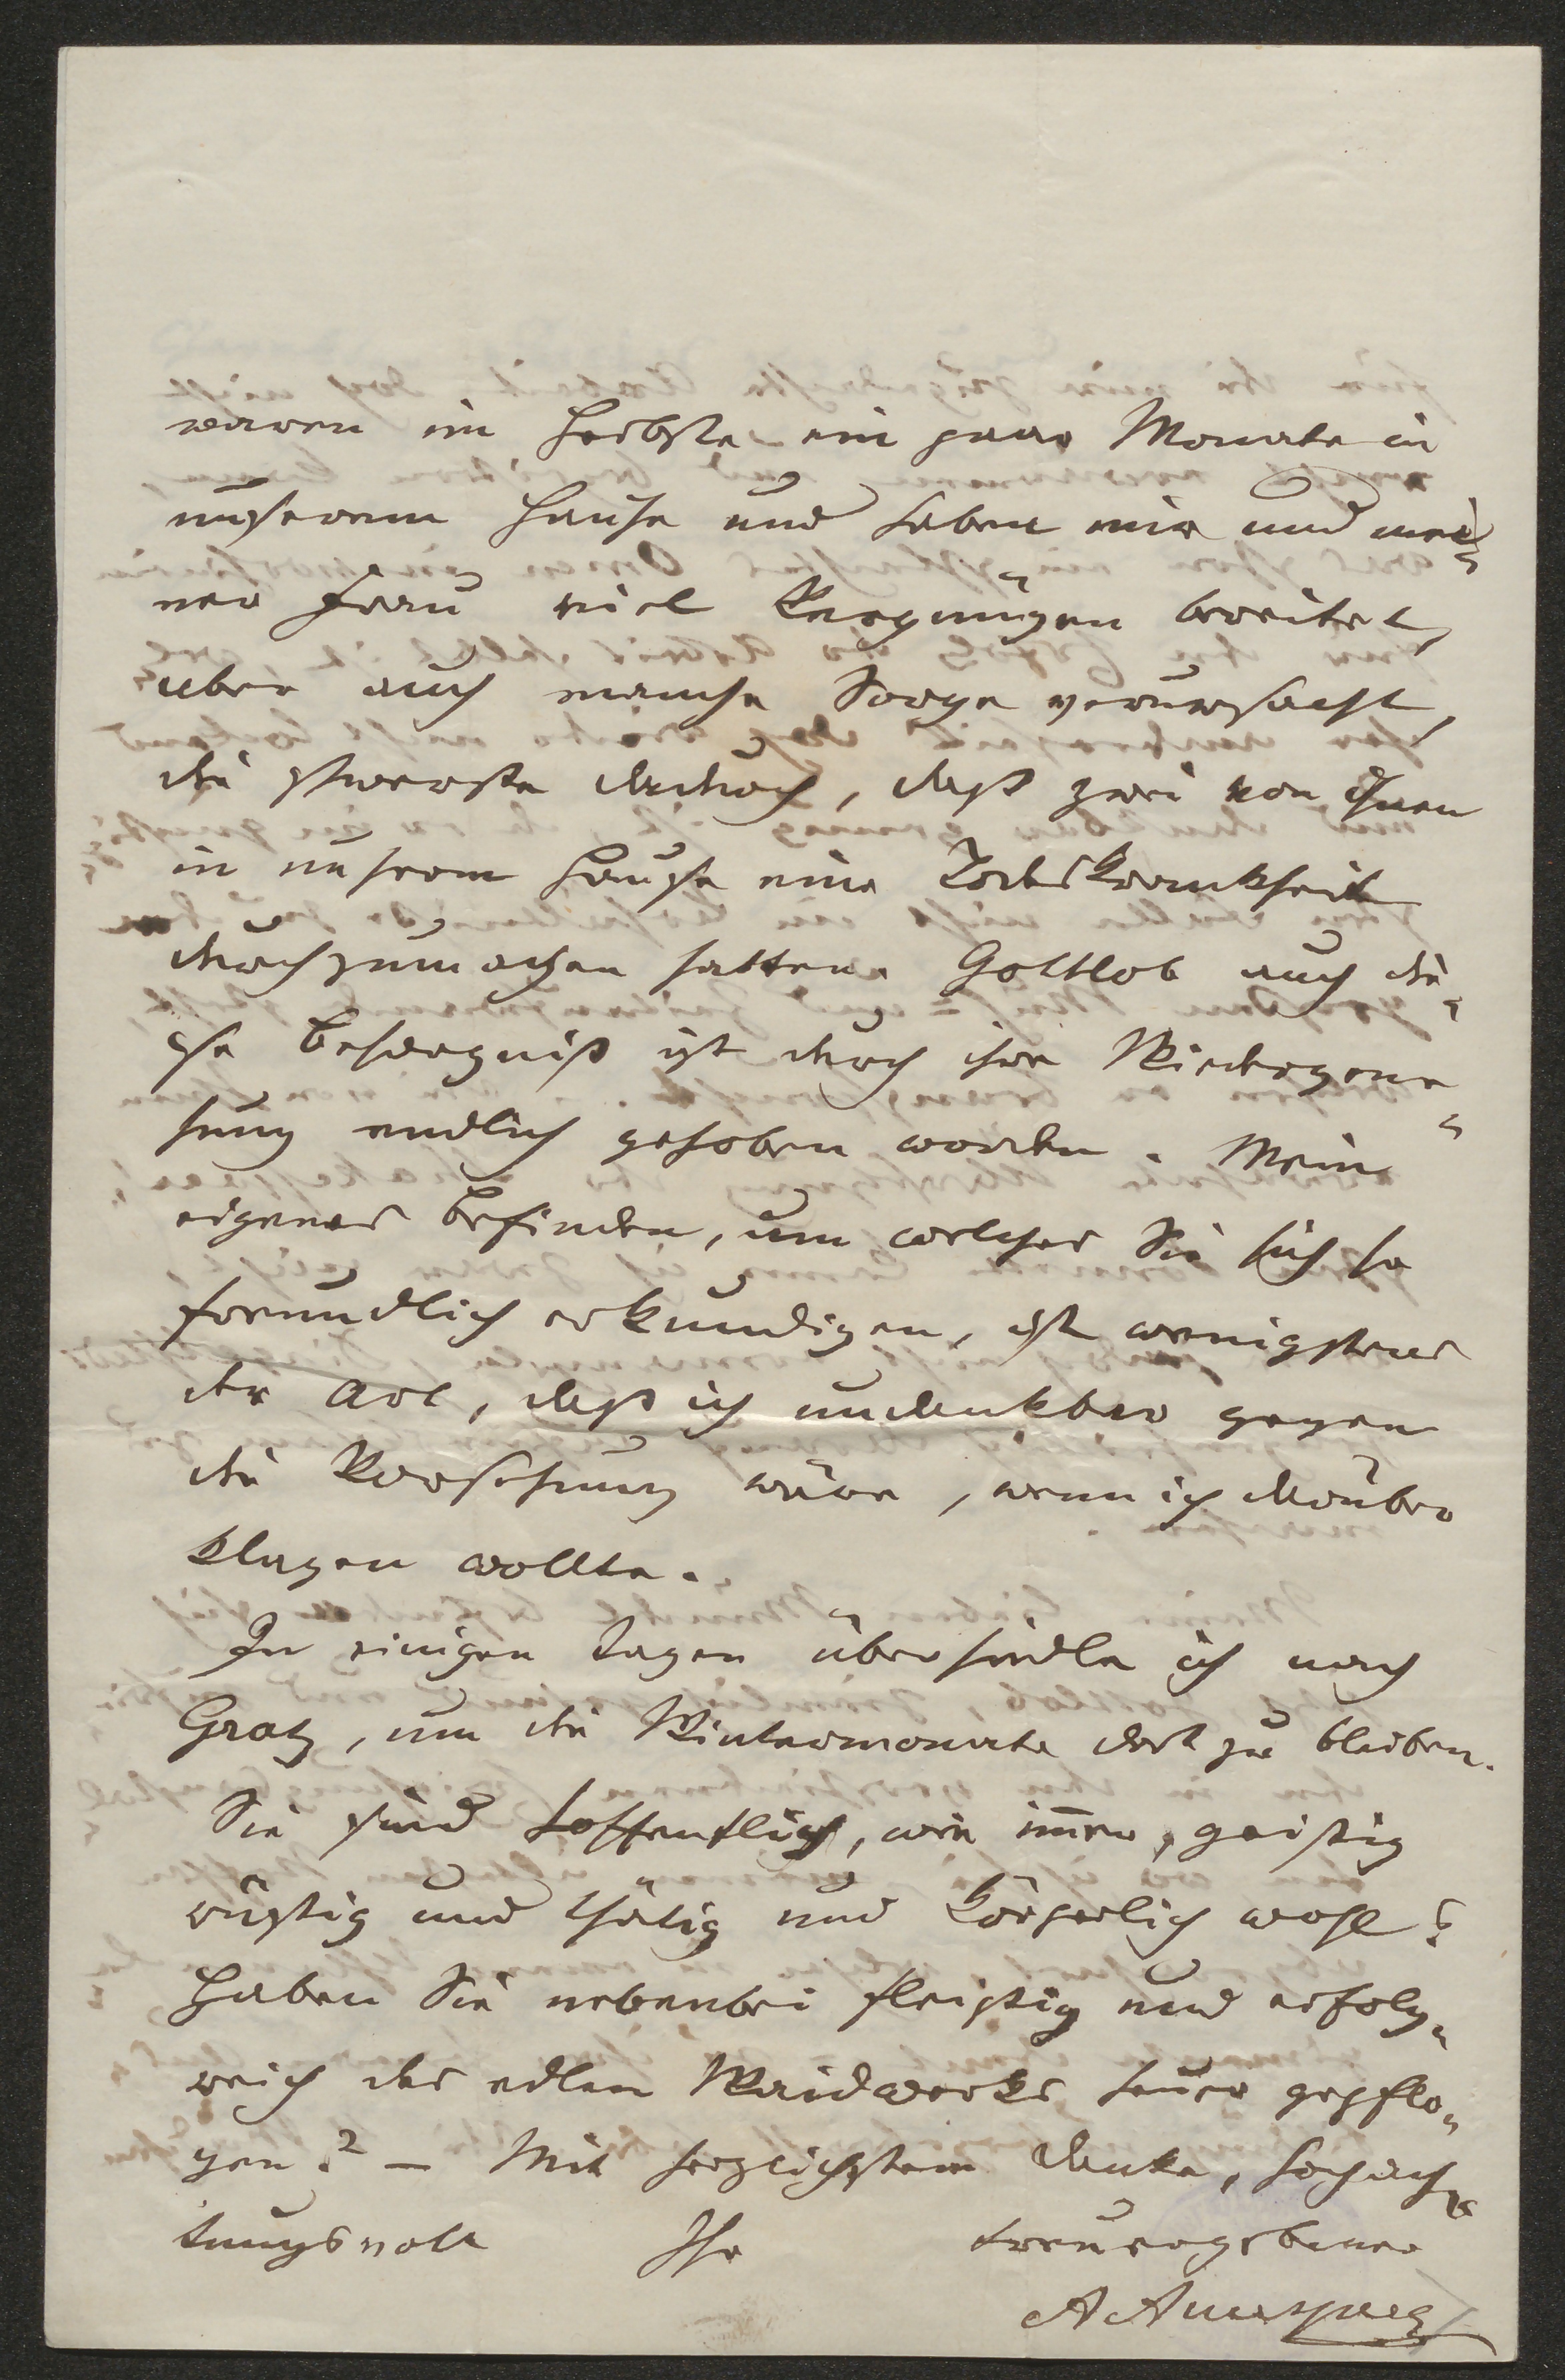 waren im Herbste ein paar Monate in
unserem Hause und haben mir und mei-
ner Frau viel Vergnügen bereitet,
aber auch manche Sorge verursacht,
die schwerste dadurch, daß zwei von ihnen
in unserem Hause eine Todeskrankheit
durchzumachen hatten. Gottlob auch die-
se Besorgniß ist durch ihre Wiedergene-
sung endlich gehoben worden. Mein
eigenes Befinden, um welches Sie sich so
freundlich erkundigen, ist wenigstens
der Art, daß ich undankbar gegen
die Vorsehung wäre, wenn ich darüber
klagen wollte.
In einigen Tagen übersiedle ich nach
Gratz, um die Wintermonate dort zu bleiben.
Sie sind hoffentlich, wie im̄er, geistig
rüstig und thätig und körperlich wohl?
Haben Sie nebenbei fleißig und erfolg-
reich des edlen Waidwerks heuer gepflo-
gen? – Mit herzlichstem Danke, hochach-
tungsvoll Ihr treuergebener
A Auersperg